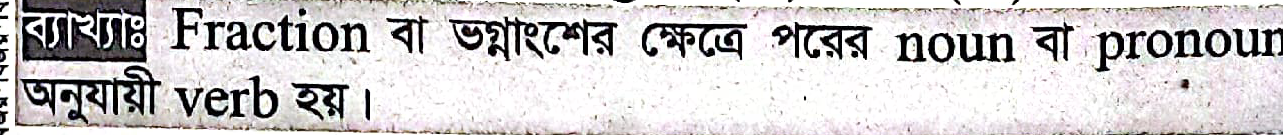 ব্যাখ্যাঃ Fraction বা ভগ্নাংশের ক্ষেত্রে পরের noun বা pronoun
অনুযায়ী verb হয়।